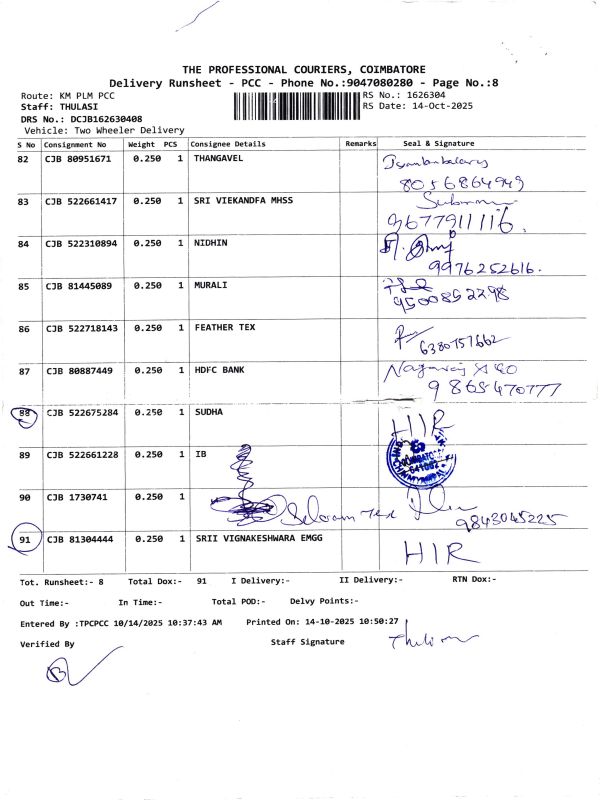 THE PROFESSIONAL COURIERS, COIMBATORE
Delivery Runsheet - PCC - Phone No.:9047080280 - Page No.:8
Route: KM PLM PCC RS No.: 1626304
Staff: THULASI RS Date: 14-Oct-2025
DRS No.: DCJB162630408
Vehicle: Two Wheeler Delivery
S No Consignment No Weight PCS Consignee Details Remarks Seal & Signature
82 CJB 80951671 0.250 1 THANGAVEL
8056864949
83 CJB 522661417 0.250 1 SRI VIEKANDFA MHSS
9677911116.
84 CJB 522310894 0.250 1 NIDHIN
9976252616.
85 CJB 81445089 0.250 1 MURALI
9500852798
86 CJB 522718143 0.250 1 FEATHER TEX
6380757662
87 CJB 80887449 0.250 1 HDFC BANK
Nagaraj
9865470777
88 CJB 522675284 0.250 1 SUDHA HIR
89 CJB 522661228 0.250 1 IB
COIMBATORE
641062
90 CJB 1730741 0.250 1
9843045225
91 CJB 81304444 0.250 1 SRII VIGNAKESHWARA EMGG HIR
Tot. Runsheet:- 8 Total Dox:- 91 I Delivery:- II Delivery:- RTN Dox:-
Out Time:- In Time:- Total POD:- Delvy Points:-
Entered By :TPCPCC 10/14/2025 10:37:43 AM Printed On: 14-10-2025 10:50:27
Verified By Staff Signature